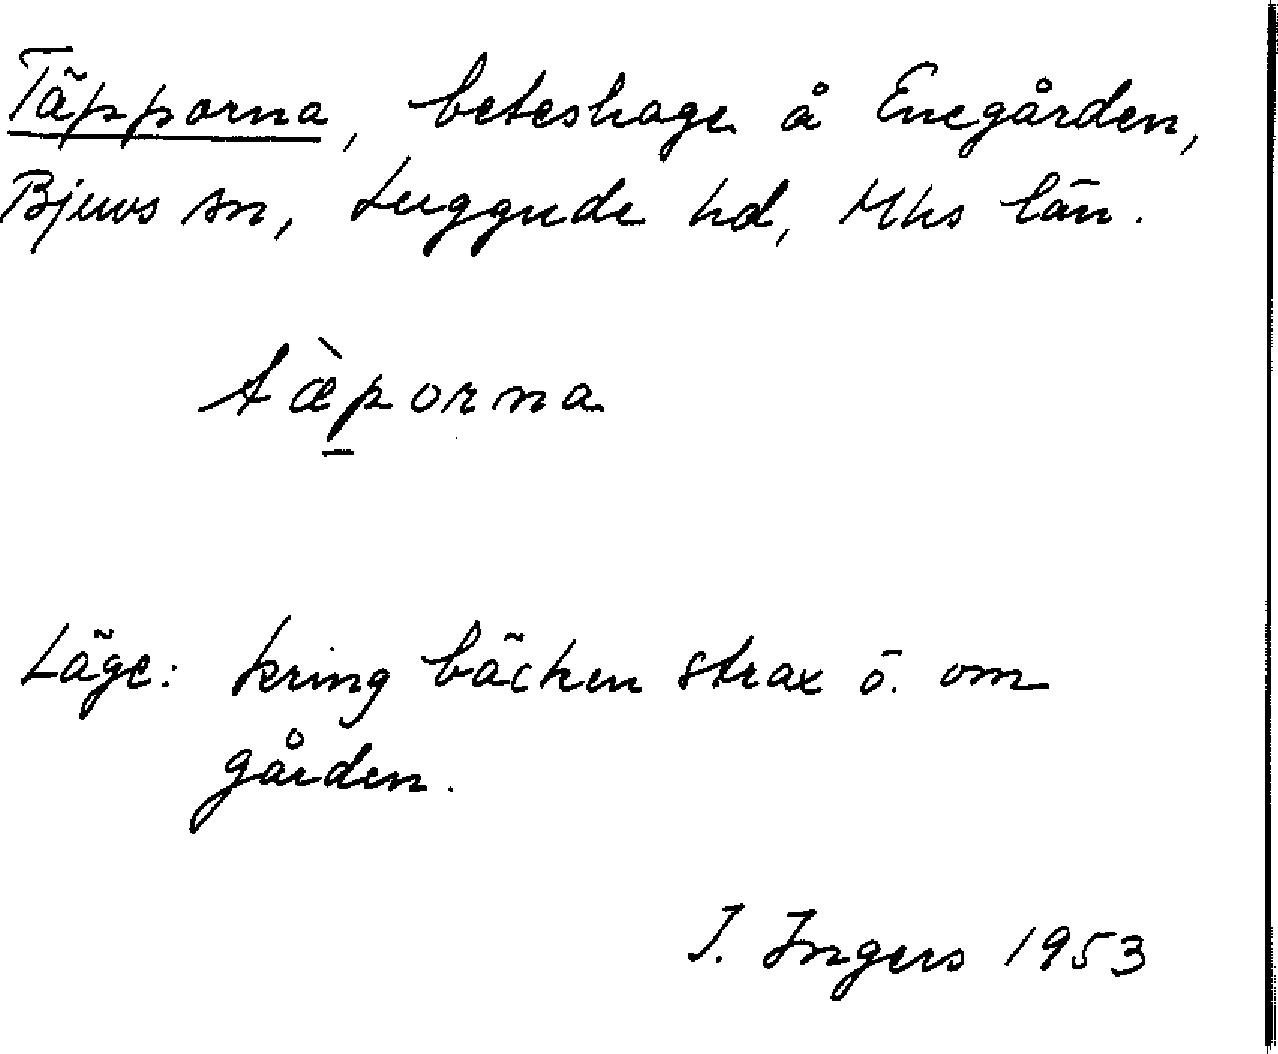 Täpporna, beteshage å Enegården,
Bjuvs sn, Luggude hd, Mhs län.
tæ̀p̲orna
Läge: kring bäcken strax ö. om
gården.
I. Ingers 1953